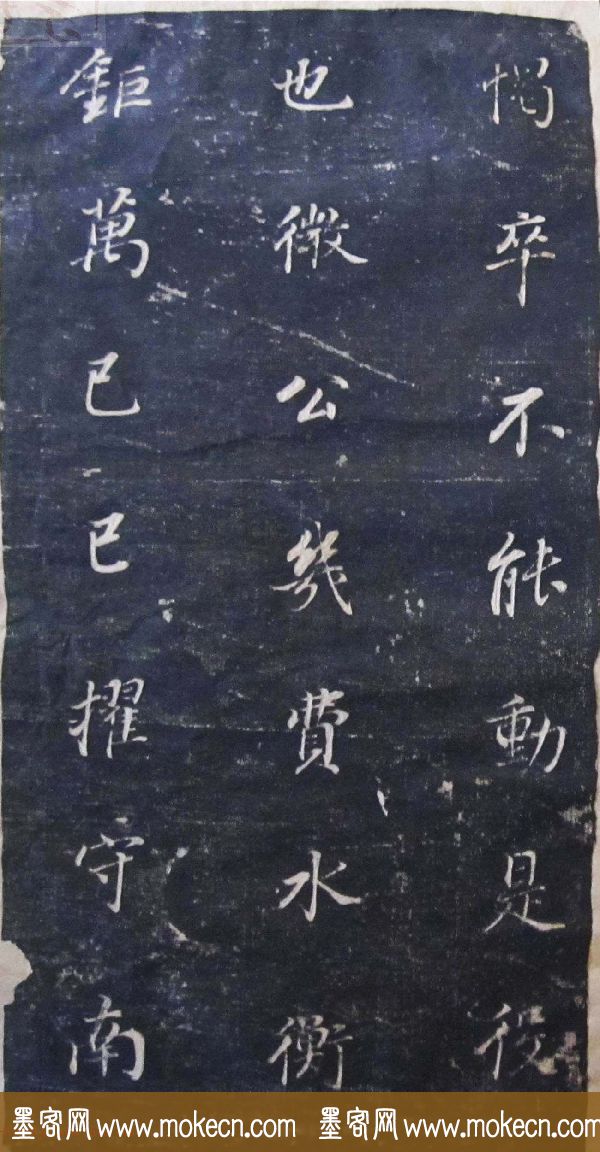 愒卒不能動是役
也微公幾費水衡
鉅萬已已擢守南
墨客网 www.mokecn.com 墨客网 www.mokecn.com